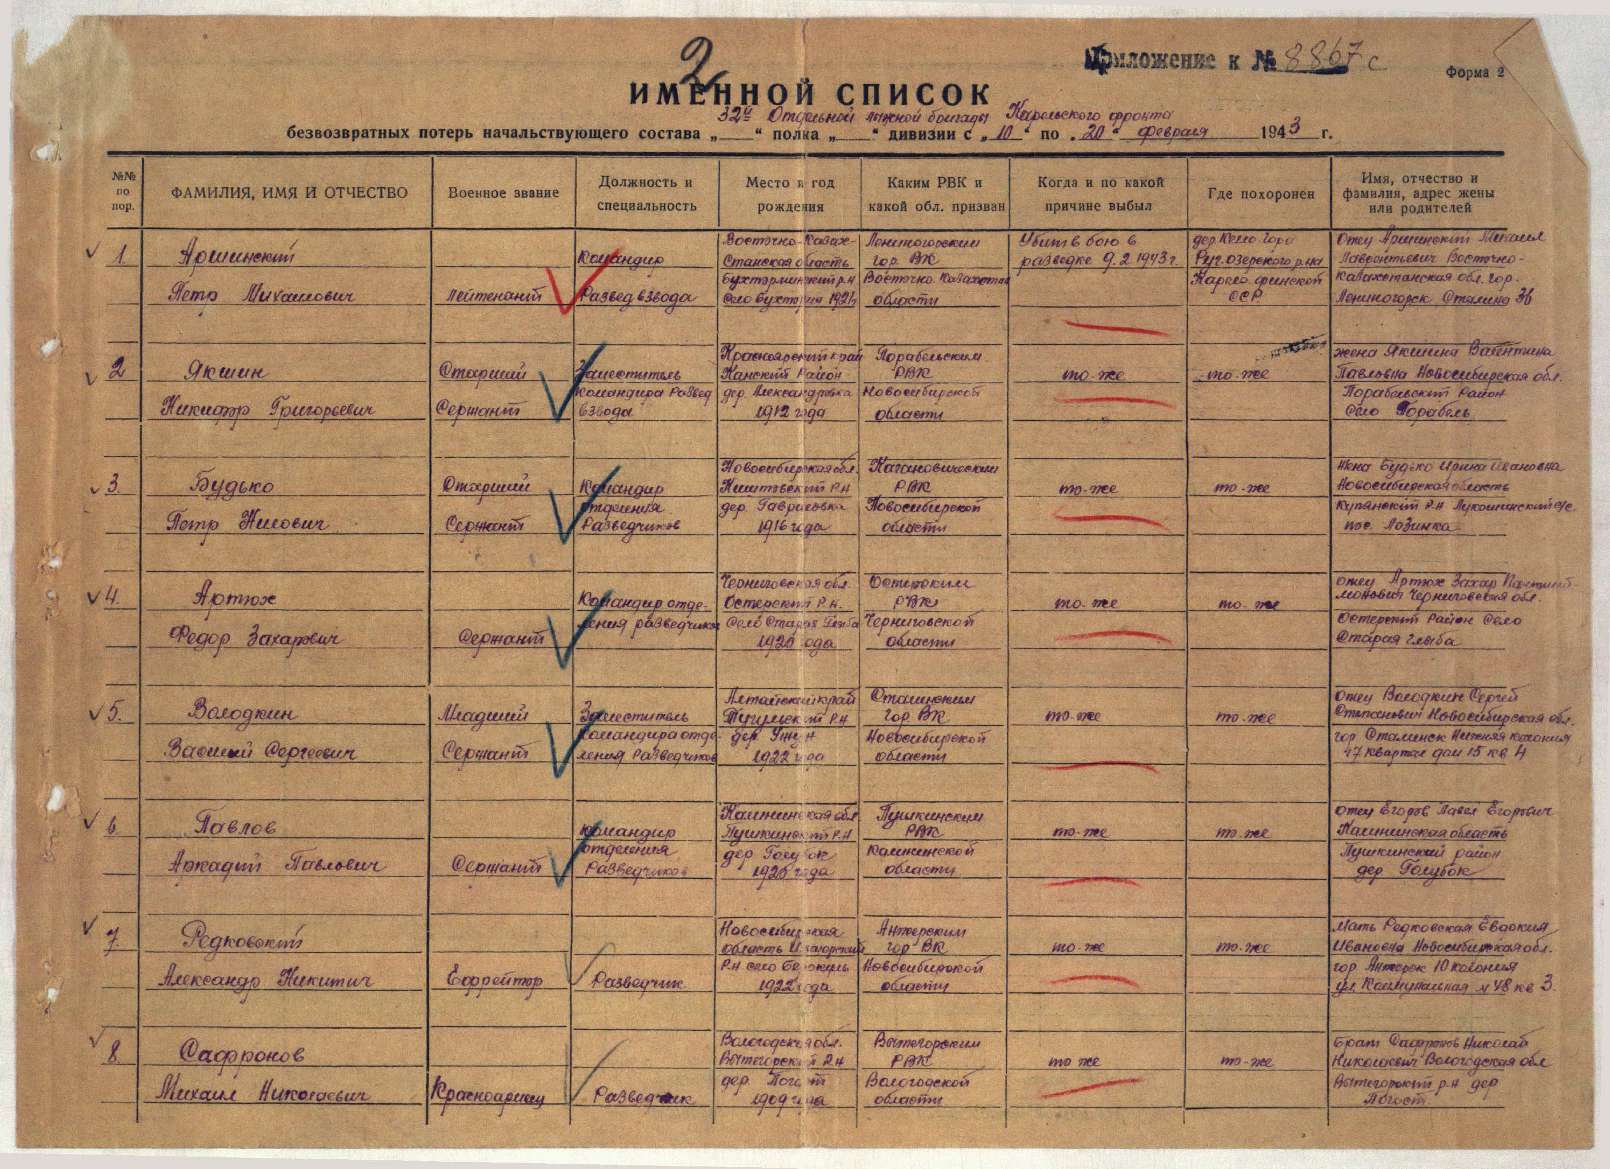 2
Приложение к № 8867 с
Форма 2
ИМЕННОЙ СПИСОК
32й Отдельной лыжной бригады Карельского фронта
безвозвратных потерь начальствующего состава „ “ полка „ “ дивизии с „10“ по „20“ февраля 1943 г.
№№ по пор.
ФАМИЛИЯ, ИМЯ И ОТЧЕСТВО
Военное звание
Должность и специальность
Место и год рождения
Каким РВК и какой обл. призван
Когда и по какой причине выбыл
Где похоронен
Имя, отчество и фамилия, адрес жены или родителей
1
Аршинский
Петр Михайлович
Лейтенант
Командир
Развед взвода
Восточно-Казах-
станская область
Бухтарминский р-н
село Бухтарма
Лениногорским
гор. ВК
Восточно Казахстан
области
Убит в бою в
разведке 9.2 1943 г
дер Кемо-гора
Ругозерского р-на
Карело финской
ССР.
отец Аршинский Михаил
Лаврентьевич Восточно-
казахстанская обл. гор.
Лениногорск Сталина 36
2
Якшин
Никифор Григорьевич
Старший
Сержант
Заместитель
командира Развед
взвода
Красноярский край
Канский Район
дер. Александровка
1912 года
Парабельским
РВК
Новосибирской
области
то-же
то-же
жена Якшина Валентина
Павловна Новосибирская обл.
Парабельский Район
село Парабель
3.
Будько
Петр Нилович
Старший
Сержант
Командир
отделения
Разведчиков
Новосибирская обл.
Кыштовский Р-Н
дер. Гавриловка
1916 года
Кагановическим
РВК
Новосибирской
области
то-же
то-же
жена Будько Ирина Ивановна
Новосибирская область
Купянский Р-Н Лукошинский с/с
пос. Лозинка
4.
Артюх
Федор Захарович
Сержант
Командир отде-
ления разведчиков
Черниговская обл.
Остерский Р.Н.
Село Старая Глыба
1920 года
Остерским
РВК
Черниговской
области
то-же
то-же
отец Артюх Захар
Черниговская обл.
Остерский Район Село
Старая глыба
5.
Володкин
Василий Сергеевич
Младший
Сержант
Заместитель
командира отде-
ления Разведчиков
Алтайский край
Р-Н
дер
1922 года
Сталинским
гор ВК
Новосибирской
области
то-же
то-же
отец Володкин Сергей
Степанович Новосибирская обл.
гор Сталинск Нижняя колония
47 квартал дом 15 кв 4
6
Павлов
Аркадий Павлович
Сержант
Командир
отделения
Разведчиков
Калининская обл
Пушкинский Р-Н
дер Голубок
1925 года
Пушкинским
РВК
Калининской
области
то-же
то-же
отец Егоров Павел Егорович
Калининская область
Пушкинский район
дер Голубок
7.
Редковский
Александр Никитич
Ефрейтор
Разведчик
Новосибирская
область Ижморский
Р-Н село Берикуль
1922 года
Анжерским
гор ВК
Новосибирской
области
то-же
то-же
Мать Редковская Евдокия
Ивановна Новосибирская обл.
гор Анжерск 10 колония
ул. Коммунальная № 48 кв 3.
8
Сафронов
Михаил Николаевич
Красноармеец
Разведчик
Вологодская обл.
Вытегорский Р-Н
дер. Погост
1909 года
Вытегорским
РВК
Вологодской
области
то же
то-же
Брат Сафронов Николай
Николаевич Вологодская обл
Вытегорский р-н дер
Погост.